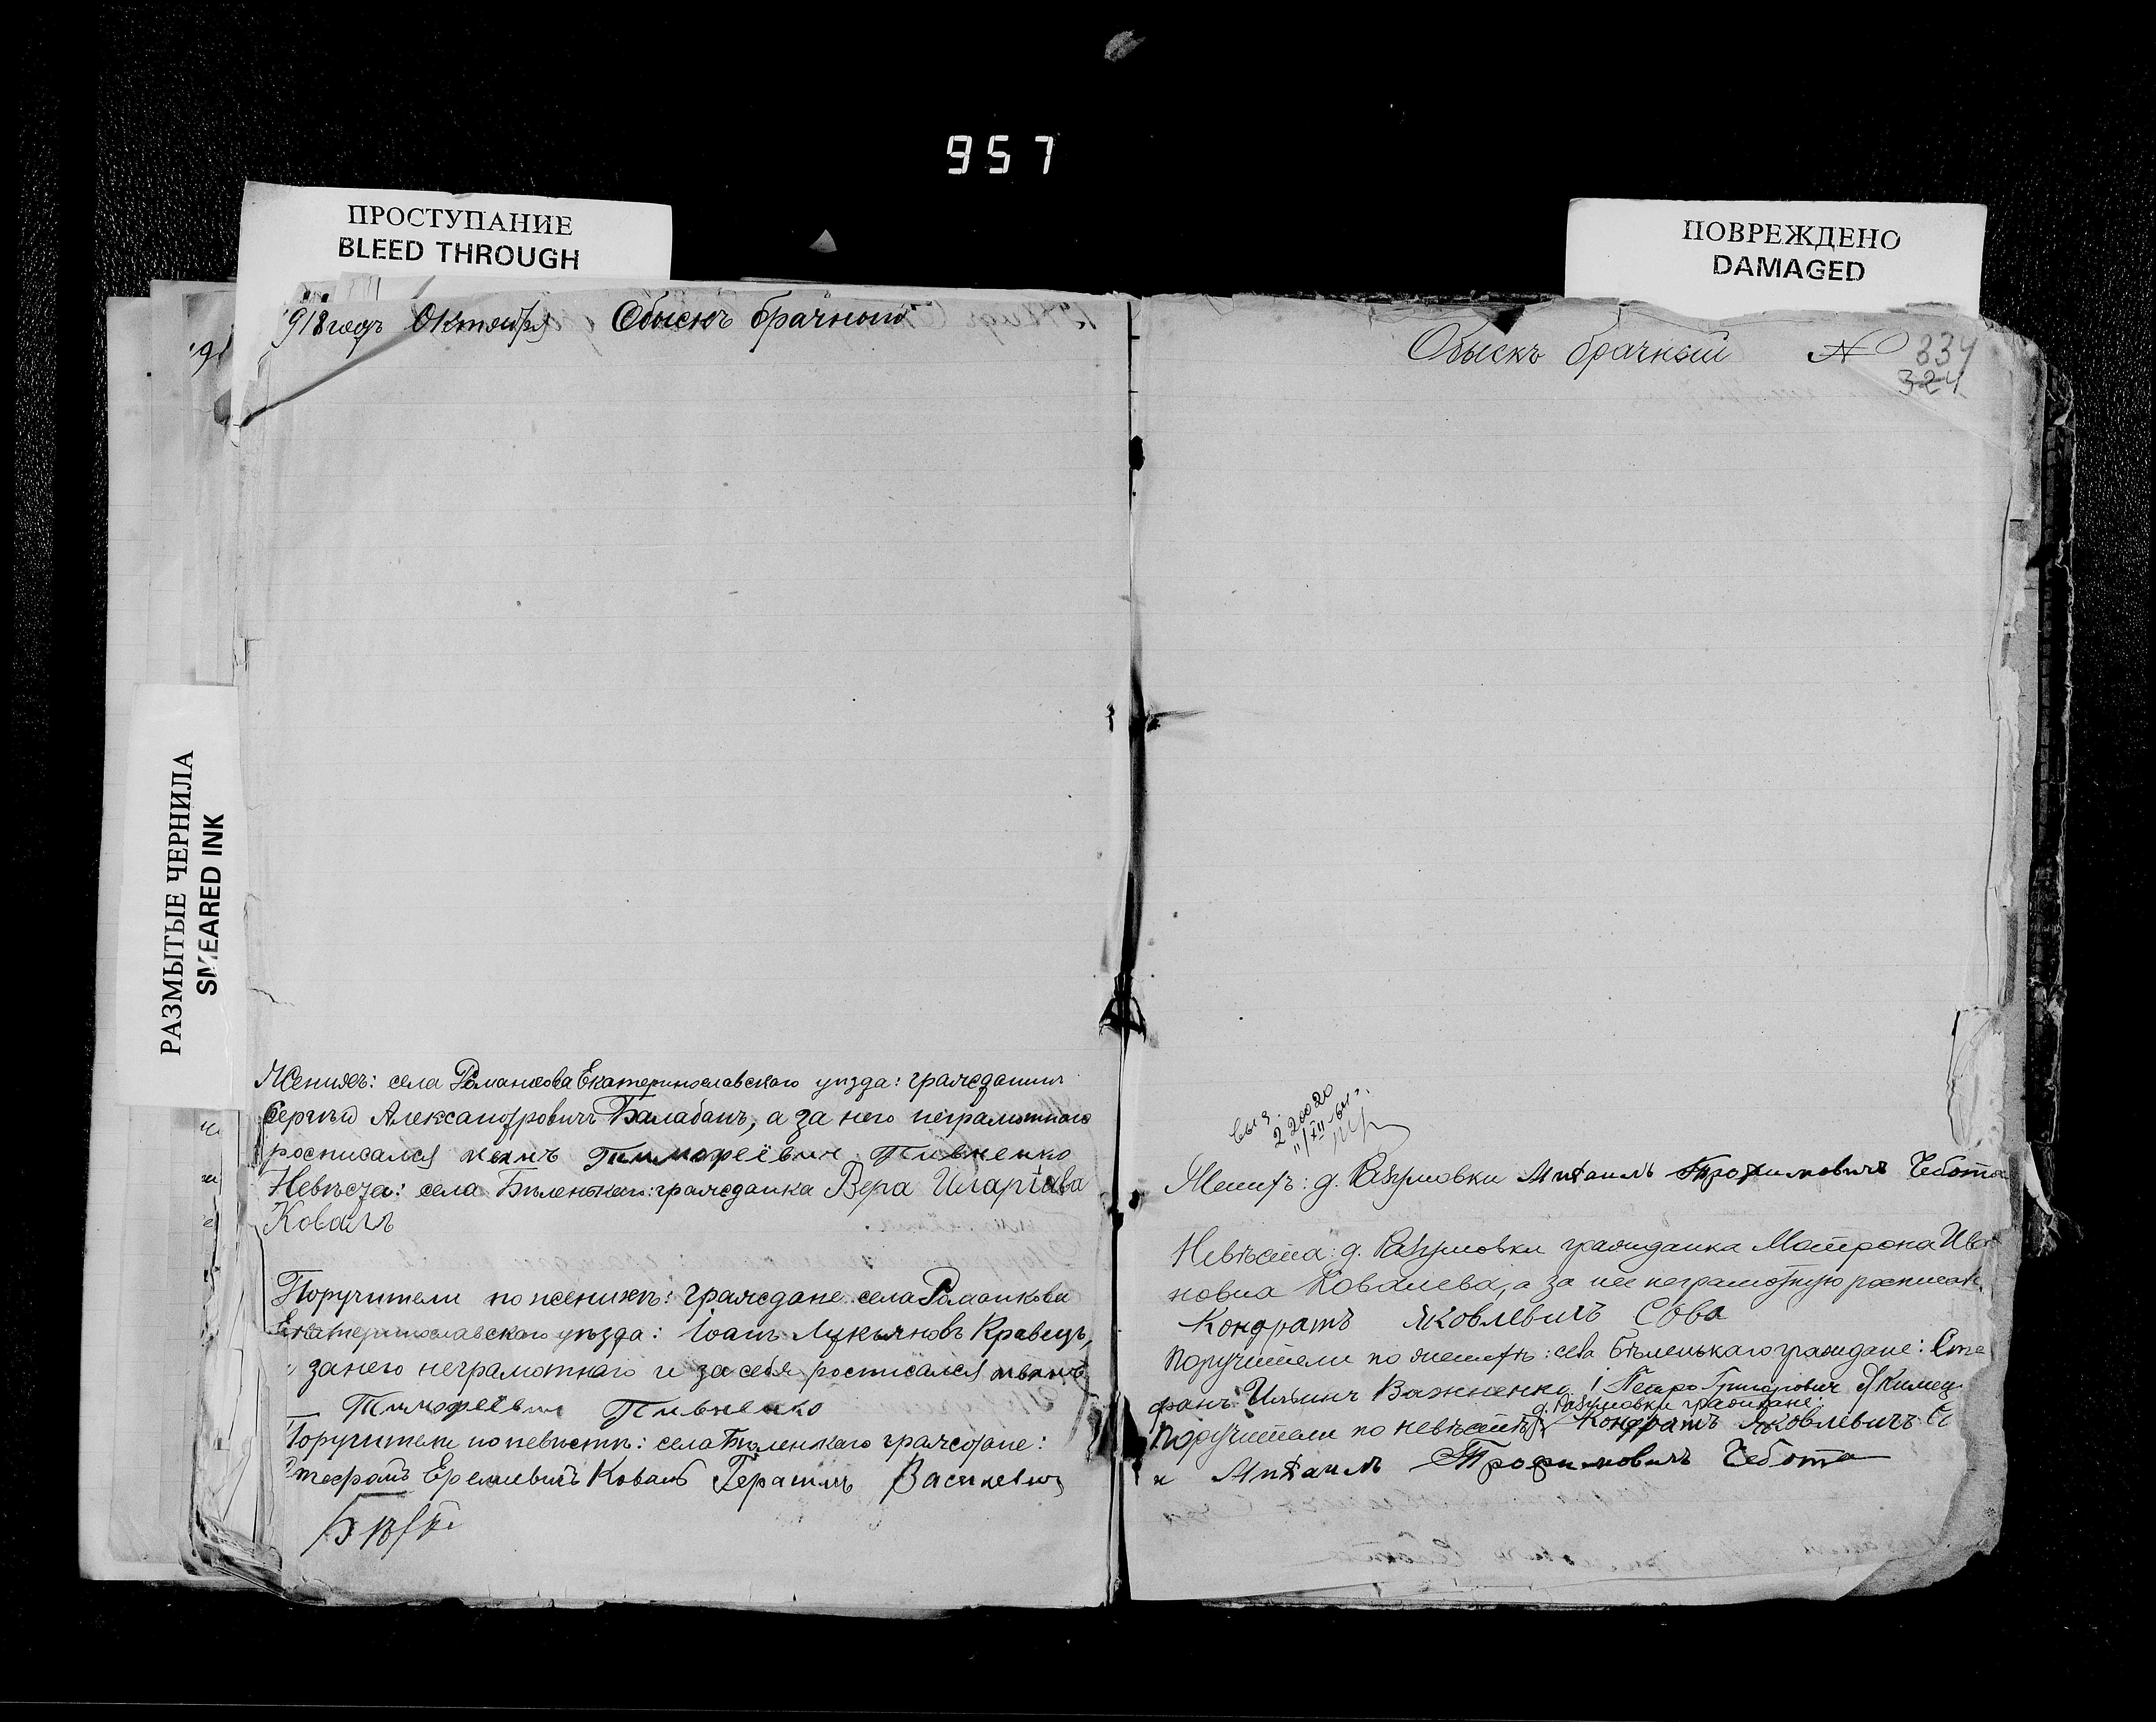 957
ПРОСТУПАНИЕ
BLEED THROUGH
ПОВРЕЖДЕНО
DAMAGED
РАЗМЫТЫЕ ЧЕРНИЛА
SMEARED INK
918 годъ Октября Обыскъ брачный
Женихъ: села Романкова Екатеринославскаго уѣзда: гражданинъ
Сергѣй Александровичъ Балабанъ, а за него неграмотного
росписался Иванъ Тимофеёвич Пивненко
Невѣста: села Бѣленькаго: гражданка Вера Иларіова
Коваль
Поручители по женихѣ: граждане села Романкова
Екатеринославскаго уѣзда: Іоанъ Лукьяновъ Кравецъ,
за него неграмотнаго и за себя росписался иванъ
Тимофеёвич Пивненко
Поручители по невѣстѣ: села Бѣленькаго граждане:
Стефанъ Еремиевичъ Коваль Герасимъ Василевич
Обыскъ брачный № 334
324
220020
Женихъ: д. Разумовки Михаилъ Трофимовичъ Чебота
Невѣста: д. Разумовки гражданка Матрона Ива
новна Ковалева, а за нее неграмотную росписал
Кондратъ Яковлевичъ Сова
Поручители по женихѣ: села Бѣленькаго граждане: Сте
фанъ Ильинъ Важненко і Петро Григорович
д. Разумовки граждане
Поручители по невѣстѣ: Кондратъ Яковлевичъ С
и Михаилъ Трофимовичъ Чебота